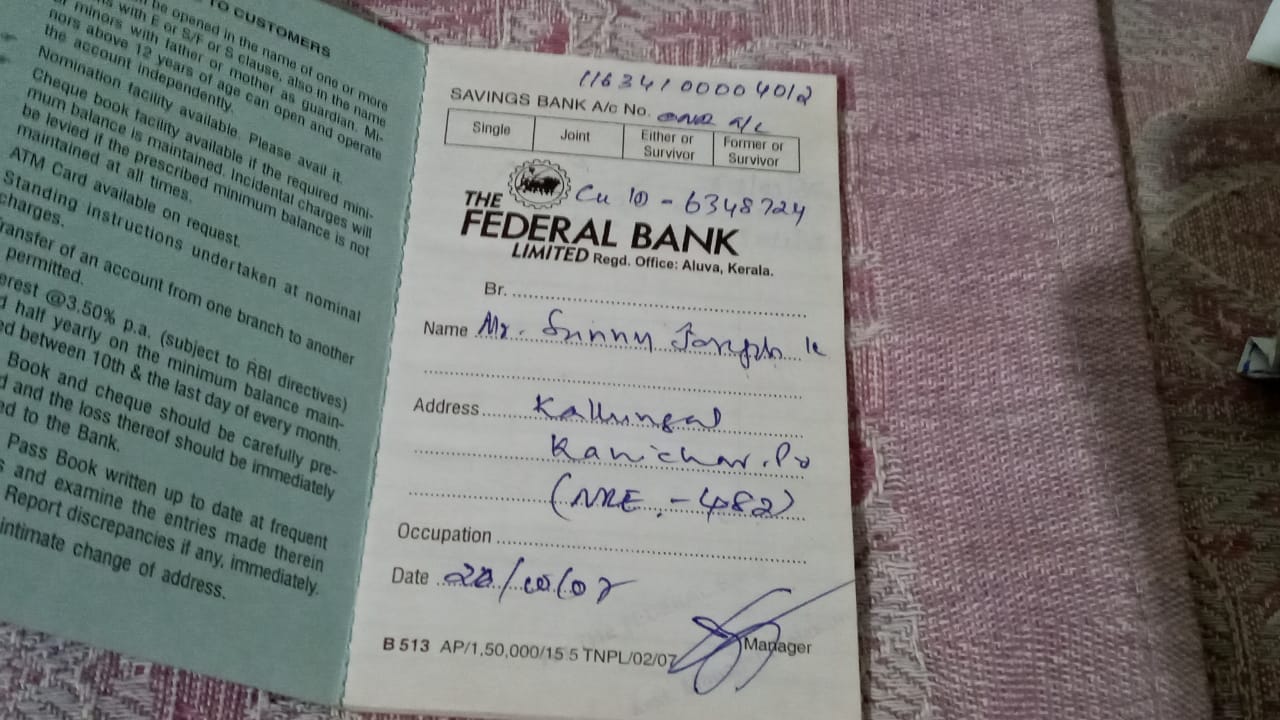 TO CUSTOMERS
be opened in the name of one or more
with E or S/F or S clause, also in the name
or minors with father or mother as guardian. Mi-
nors above 12 years of age can open and operate
the account independently.
Nomination facility available. Please avail it.
Cheque book facility available if the required mini-
mum balance is maintained. Incidental charges will
be levied if the prescribed minimum balance is not
maintained at all times.
ATM Card available on request.
Standing instructions undertaken at nominal
charges.
ransfer of an account from one branch to another
permitted.
erest @3.50% p.a. (subject to RBI directives)
half yearly on the minimum balance main-
ed between 10th & the last day of every month.
Book and cheque should be carefully pre-
d and the loss thereof should be immediately
ed to the Bank.
Pass Book written up to date at frequent
s and examine the entries made therein
Report discrepancies if any, immediately.
intimate change of address.
11634100004012
SAVINGS BANK A/c No. A/c
Single Joint Either or Survivor Former or Survivor
Cu ID - 6348724
THE
FEDERAL BANK
LIMITED Regd. Office: Aluva, Kerala.
Br.
Name Mr. Sunny Joseph K
Address Kallungal
Kanichar. Po
(NRE. - 482)
Occupation
Date
B 513 AP/1,50,000/15 5 TNPL/02/07 Manager